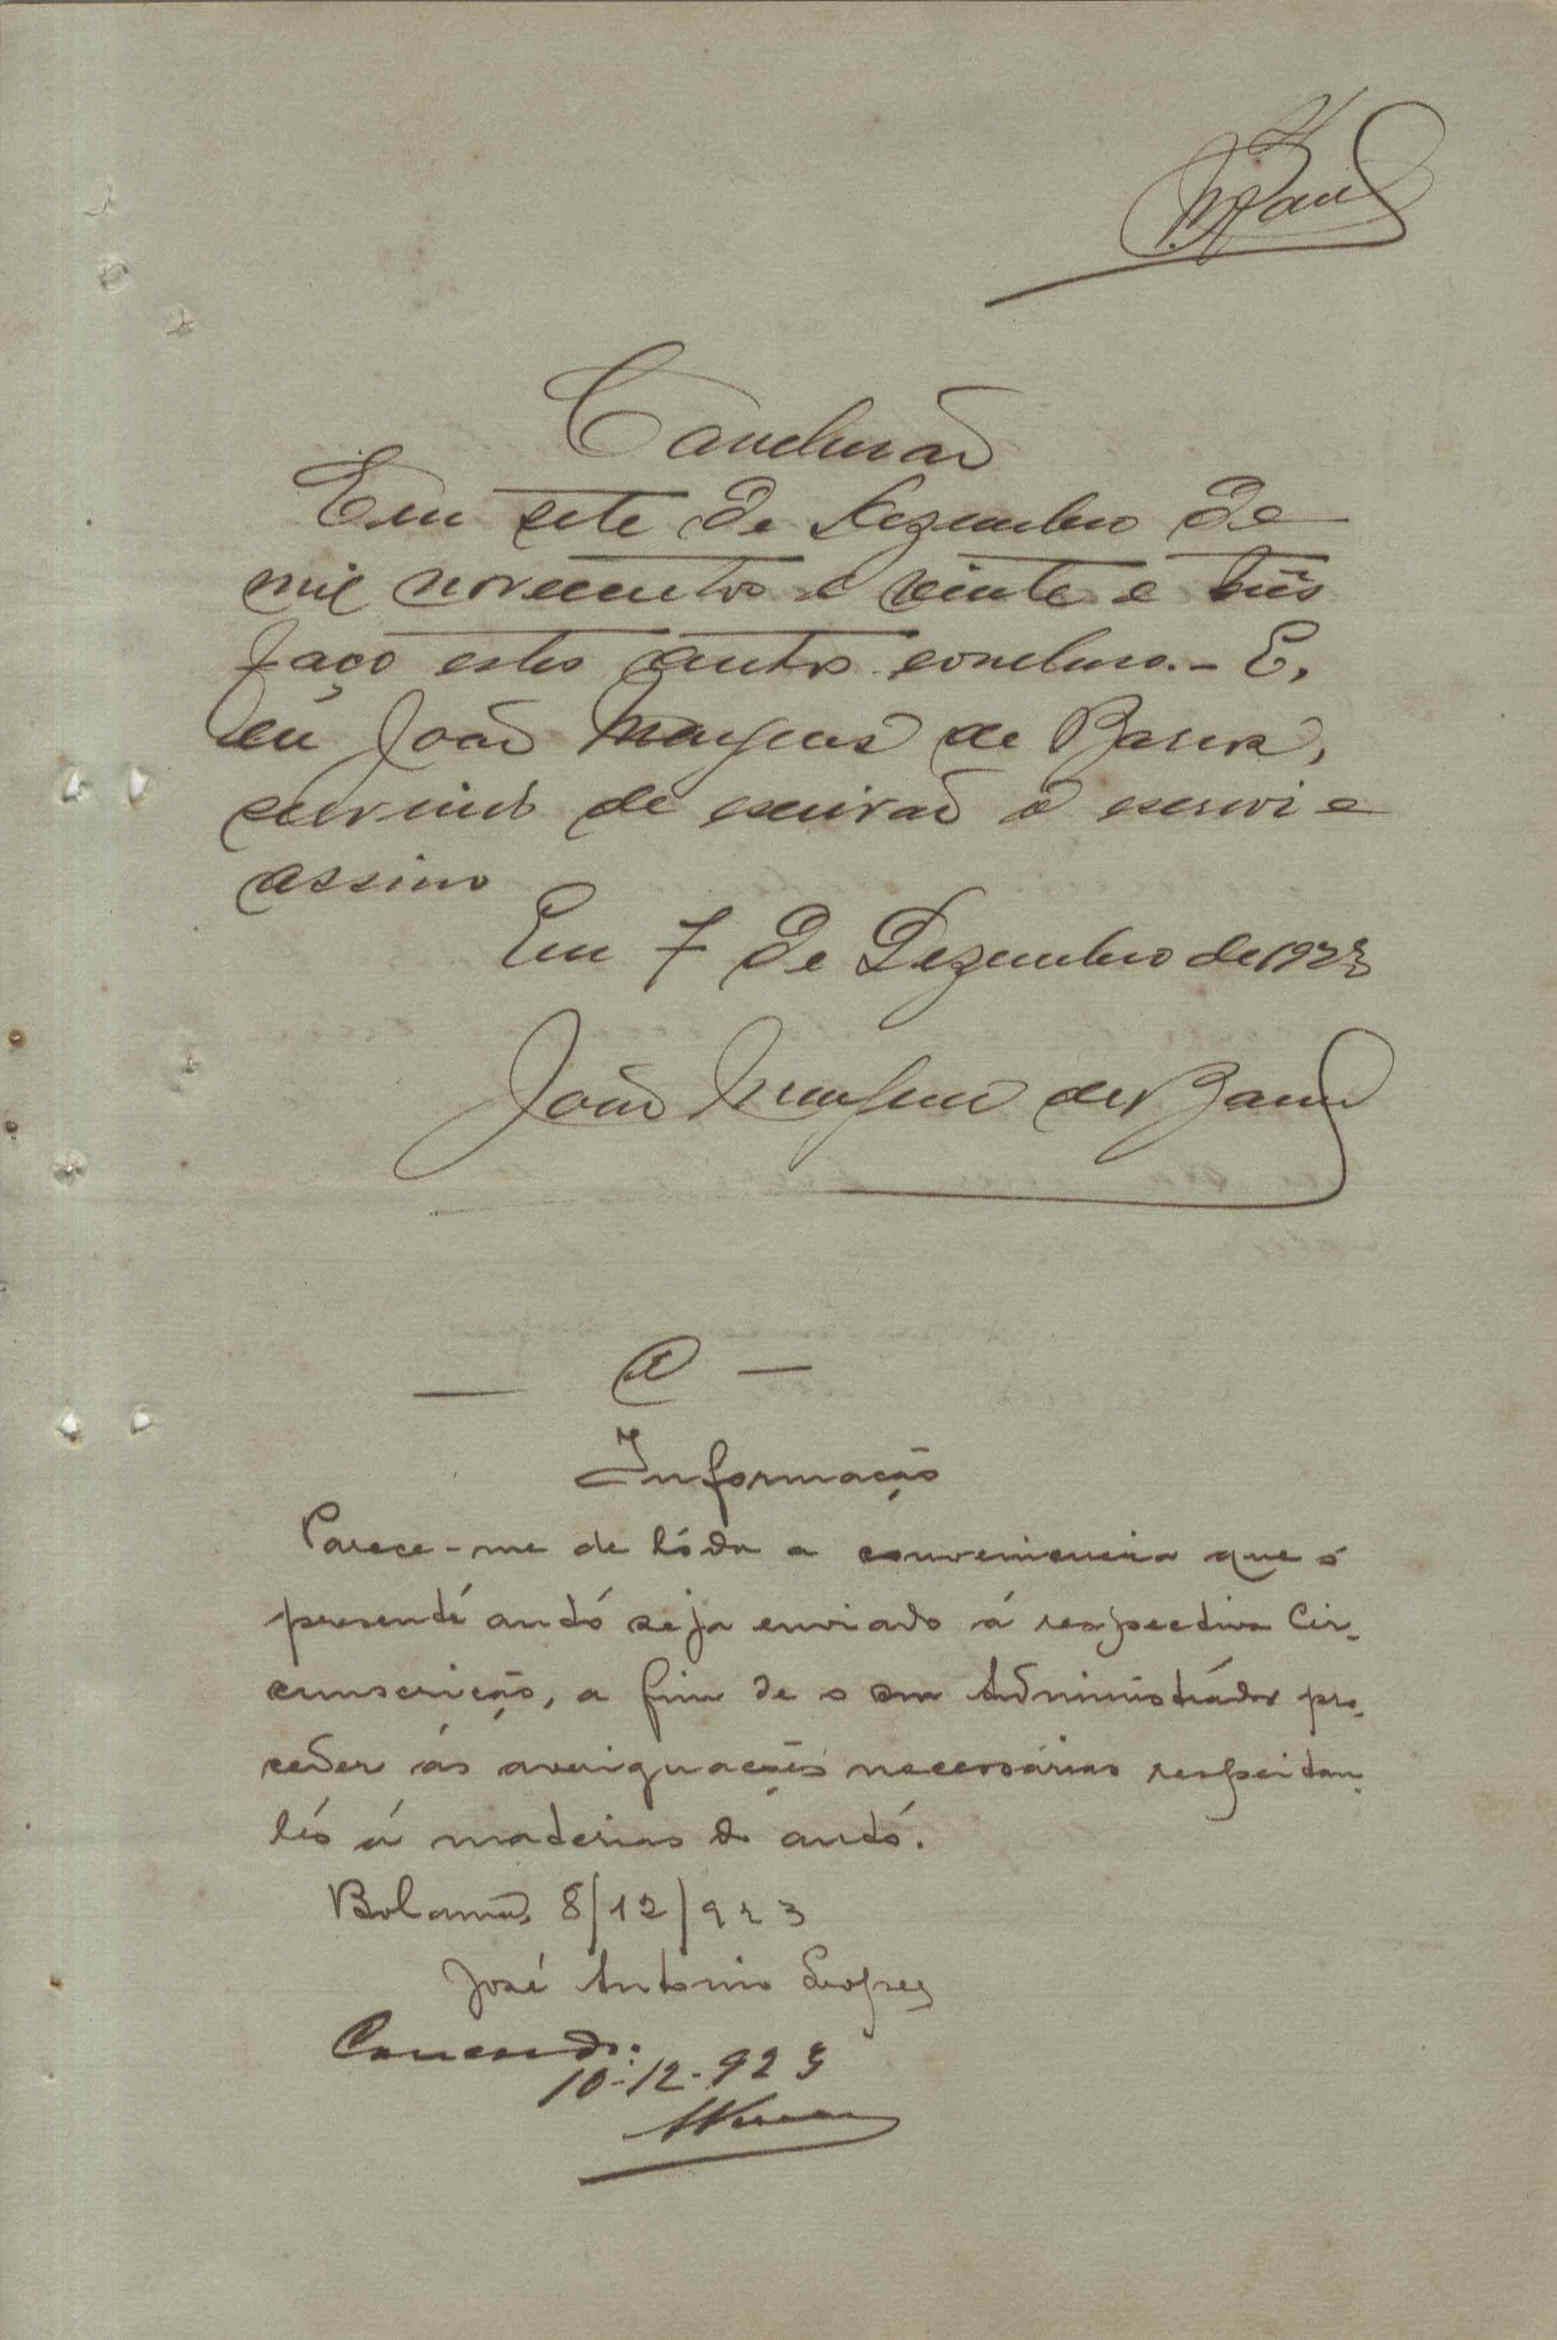 Conclusão
Em sete de Dezembro de
mil novecentos e vinte e três
faço estes autos conclusos. - E,
eu João de Barros,
servindo de escrivão o escrevi e
assino
Em 7 de Dezembro de 1923
João de Barros
Informação
Parece-me de tóda a conveniencia que o
presente autó seja enviado á respectiva Cir-
cunscrição, a fim de o Administrádor pro-
ceder ás averiguações necessárias respeitan-
tes á materias do autó.
Bolama, 8/12/923
José Antonio Lopes
Concordo.
10-12-923